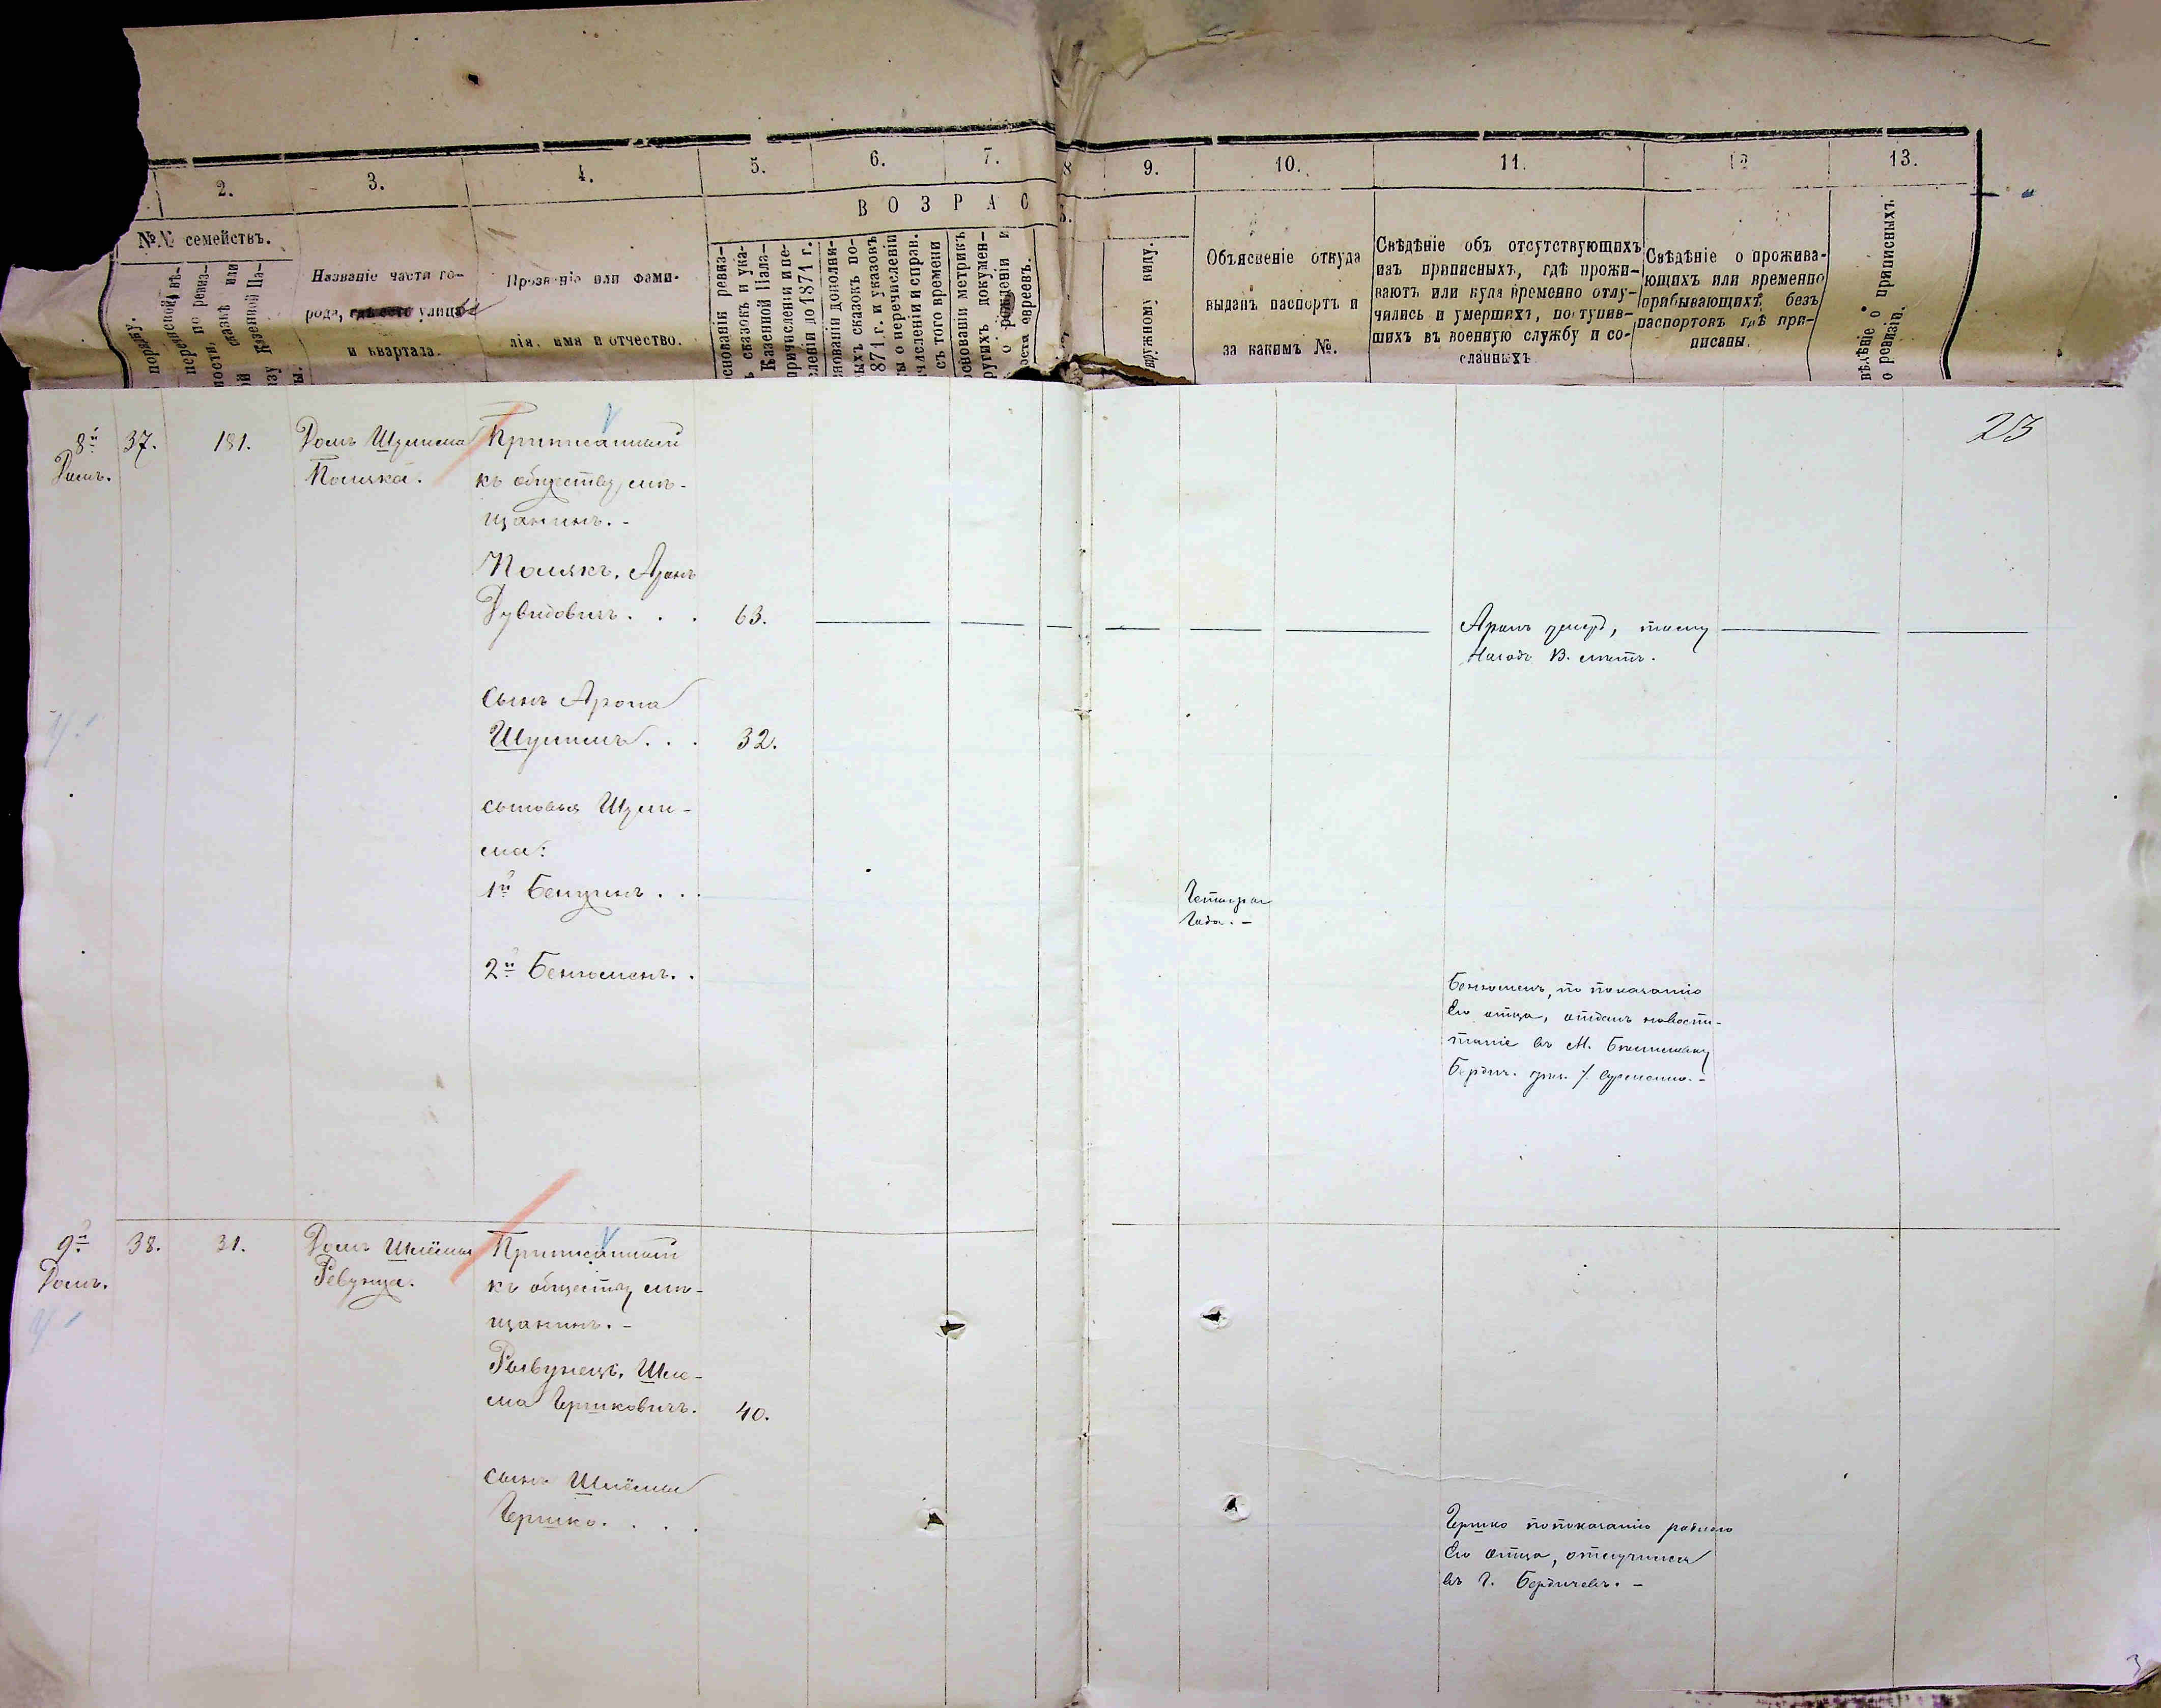 2.
3.
4.
5.
6.
7.
8
9.
10.
11.
12
13.
ВОЗРАС
№№ семействъ.
порядку.
Названіе части го-
рода, улицы
и квартала.
Прозваніе или фами-
лія, имя и отчество.
основаніи ревиз-
сказокъ и ука-
Казенной Пала-
причисленіи и пе-
сленіи до 1871 г.
новании дополни-
ыхъ сказокъ по-
871 г. и указовъ
ы о перечисленіи
численіи и справ.
съ того времени
основаніи метрикъ
ругихъ докумен-
о рожденіи и
ости евреевъ.
аружному виду.
Объясненіе откуда
выданъ паспортъ и
за какимъ №.
Свѣдѣніе объ отсутствующихъ
изъ приписныхъ, гдѣ прожи-
ваютъ или куда временно отлу-
чились и умершихъ, поступив-
шихъ въ военную службу и со-
сланныхъ
Свѣдѣніе о прожива-
ющихъ или временно
прибывающихъ безъ
паспортовъ гдѣ при-
писаны.
вѣдѣніе о приписныхъ
о ревизіи.
23
8й
Домъ.
37.
181.
Домъ Шулима
Поляка.
Приписанный
къ обществу, мѣ-
щанинъ. -
Полякъ, Аронъ
Дувидовичъ . . .
63.
Аронъ умеръ, тому
Назадъ 13. лѣтъ.
сынъ Арона
Шулимъ . . .
32.
сыновья Шули-
ма:
1й Бенцинъ . . .
Четыре
Года. -
2й Бенюменъ. .
Бенюменъ, по показанію
Его отца, отданъ на воспи-
таніе въ М.
Бердич. уѣз.
9й
Домъ.
38.
31.
Домъ Шлёмы
Ревунца.
Приписанный
къ обществу мѣ-
щанинъ. -
Рывунецъ, Шлё-
ма Гершковичъ.
40.
сынъ Шлёмы
Гершко. . . .
Гершко по показанію роднаго
Его отца, отлучился
въ г. Бердичевъ. -